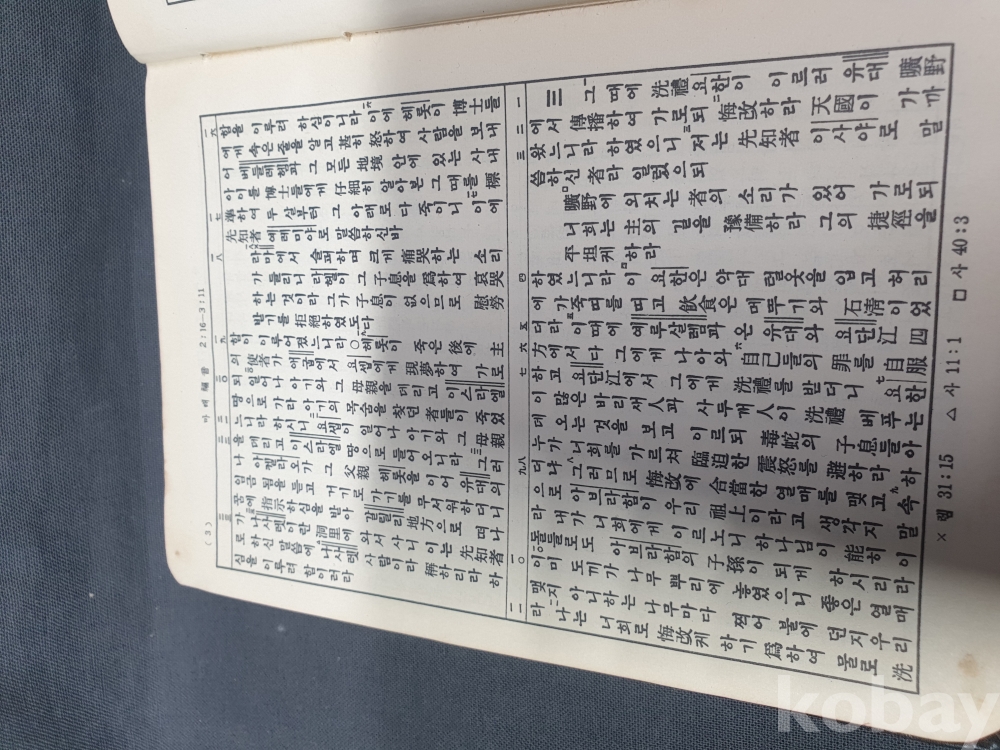 마태福音 2:16—3:11
(3)
함을 이루려 하심이니라 이에 헤롯이 博士들
에게 속은줄을 알고 甚히 怒하여 사람을 보내
어 베들레헴과 그 모든 地境 안에 있는 사내
아이를 博士들에게 仔細히 알아본 그 때를 標
準하여 두 살부터 그 아래로 다 죽이니 이에
先知者 예레미야로 말씀하신바
라마에서 슬퍼하며 크게 痛哭하는 소리
가 들리니 라헬이 그 子息을 爲하여 哀哭
하는 것이라 그가 子息이 없으므로 慰勞
받기를 拒絶하였도다
함이 이루어졌느니라 ○헤롯이 죽은 後에 主
의 使者가 애굽에서 요셉에게 現夢하여 가로
되 일어나 아기와 그 母親을 데리고 이스라엘
땅으로 가라 아기의 목숨을 찾던 者들이 죽었
느니라 하시니 요셉이 일어나 아기와 그 母親
을 데리고 이스라엘 땅으로 들어오니라 그러
나 아켈라오가 그 父親 헤롯을 이어 유대의
임금 됨을 듣고 거기로 가기를 무서워하더니
꿈에 指示하심을 받아 갈릴리 地方으로 떠나
가 나사렛이란 洞里에 와서 사니 이는 先知者
로 하신 말씀에 나사렛 사람이라 稱하리라 하
심을 이루려 함이러라
三 그 때에 洗禮 요한이 이르러 유대 曠野
에서 傳播하여 가로되 悔改하라 天國이 가까
왔느니라 하였으니 저는 先知者 이사야로 말
씀하신 者라 일렀으되
曠野에 외치는 者의 소리가 있어 가로되
너희는 主의 길을 豫備하라 그의 捷徑을
平坦케 하라
하였느니라 이 요한은 약대 털옷을 입고 허리
에 가죽띠를 띠고 飮食은 메뚜기와 石淸이었
더라 이 때에 예루살렘과 온 유대와 요단江 四
方에서 다 그에게 나아와 自己들의 罪를 自服
하고 요단江에서 그에게 洗禮를 받더니 요한
이 많은 바리새人과 사두개人이 洗禮 베푸는
데 오는 것을 보고 이르되 毒蛇의 子息들아
누가 너희를 가르쳐 臨迫한 震怒를 避하라 하
더냐 그러므로 悔改에 合當한 열매를 맺고 속
으로 아브라함이 우리 祖上이라고 생각지 말
라 내가 너희에게 이르노니 하나님이 能히 이
돌들로도 아브라함의 子孫이 되게 하시리라
이미 도끼가 나무 뿌리에 놓였으니 좋은 열매
맺지 아니하는 나무마다 찍어 불에 던지우리
라 나는 너희로 悔改케 하기 爲하여 물로 洗
× 렘 31:15 △ 사 11:1 □ 사 40:3
kobay